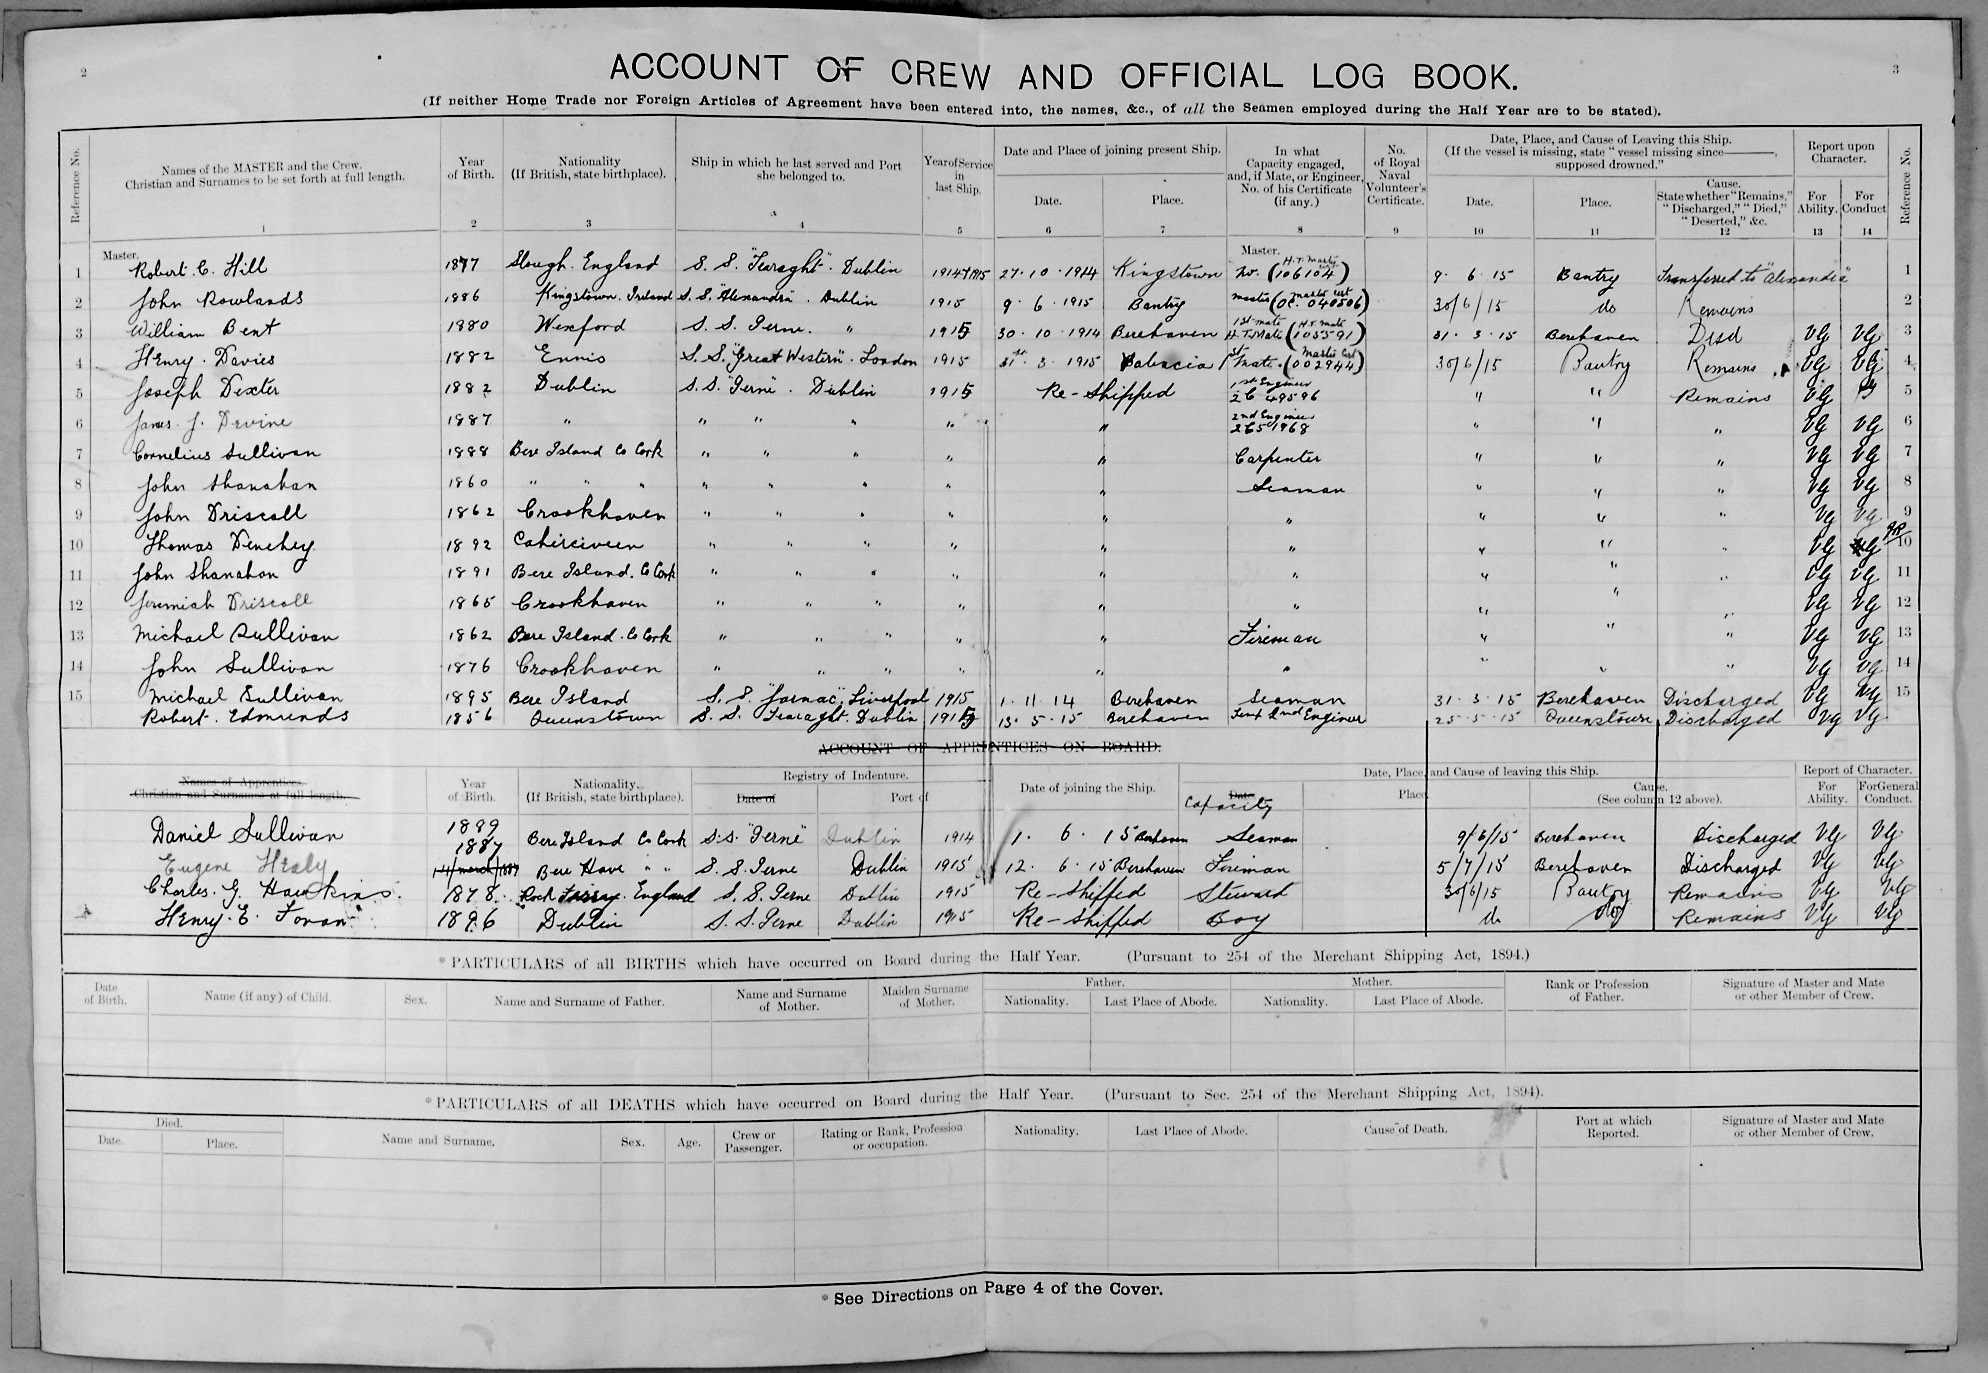 2
3
ACCOUNT OF CREW AND OFFICIAL LOG BOOK.
(If neither Home Trade nor Foreign Articles of Agreement have been entered into, the names, &c., of all the Seamen employed during the Half Year are to be stated).
Reference No. Names of the MASTER and the Crew. Christian and Surnames to be set forth at full length. Year of Birth. Nationality (If British, state birthplace). Ship in which he last served and Port she belonged to. Year of Service in last Ship. Date and Place of joining present Ship. Date. Place. In what Capacity engaged, and, if Mate, or Engineer, No. of his Certificate (if any.) No. of Royal Naval Volunteer's Certificate. Date, Place, and Cause of Leaving this Ship. (If the vessel is missing, state "vessel missing since ———, supposed drowned." Date. Place. Cause. State whether "Remains," "Discharged," "Died," "Deserted," &c. Report upon Character. For Ability. For Conduct Reference No.
1 2 3 4 5 6 7 8 9 10 11 12 13 14
Master. Master.
1 Robert C. Hill 1877 Slough. England S. S. "Tearaght". Dublin 1914+1915 27·10·1914 Kingstown No. (106104) 9·6·15 Bantry Transferred to "Alexandra" 1
2 John Rowlands 1886 Kingstown. Ireland S. S. "Alexandra". Dublin 1915 9·6·1915 Bantry Master (040506) 30/6/15 do Remains 2
3 William Bent 1880 Wexford S. S. Ierne. " 1915 30·10·1914 Berehaven 1st Mate H.T. Mate (105591) 31·3·15 Berehaven Disd VG VG 3
4 Henry. Davies 1882 Ennis S. S. "Great Western". London 1915 31st·3·1915 Valencia 1st Mate. (002944) 30/6/15 Bantry Remains VG VG 4
5 Joseph Dexter 1882 Dublin S. S. "Ierne". Dublin 1915 Re-Shipped 1st Engineer 2C 49596 " " Remains VG 5
6 James. J. Devine 1887 " " " " " " 2nd Engineer 2C51968 " " " VG VG 6
7 Cornelius Sullivan 1888 Bere Island Co Cork " " " " " Carpenter " " " VG VG 7
8 John Shanahan 1860 " " " " " " " " Seaman " " " VG VG 8
9 John Driscoll 1862 Crookhaven " " " " " " " " " VG VG 9
10 Thomas Denehey 1892 Cahirciveen " " " " " " " " " VG VG 10
11 John Shanahan 1891 Bere Island. Co Cork " " " " " " " " " VG VG 11
12 Jeremiah Driscoll 1865 Crookhaven " " " " " " " " " VG VG 12
13 Michael Sullivan 1862 Bere Island. Co Cork " " " " " Fireman " " " VG VG 13
14 John Sullivan 1876 Crookhaven " " " " " " " " " VG VG 14
15 Michael Sullivan 1895 Bere Island S. S. "Jarnac", Liverpool 1915 1·11·14 Berehaven Seaman 31·3·15 Berehaven Discharged VG VG 15
Robert. Edmunds 1856 Queenstown S. S. Tearaght. Dublin 1915 13·5·15 Berehaven Temp 2nd Engineer 25·5·15 Queenstown Discharged VG VG
ACCOUNT OF APPRENTICES ON BOARD.
Names of Apprentices. Christian and Surnames at full length. Year of Birth. Nationality. (If British, state birthplace). Registry of Indenture. Date of Port of Date of joining the Ship. Date Capacity Date, Place, and Cause of leaving this Ship. Place. Cause. (See column 12 above). Report of Character. For Ability. For General Conduct.
Daniel Sullivan 1889 Bere Island Co Cork S. S. "Ierne" Dublin 1914 1·6·15 Berehaven Seaman 9/6/15 Berehaven Discharged VG VG
Eugene Healy 1887 Bere Have " " S. S. Ierne Dublin 1915 12·6·15 Berehaven Fireman 5/7/15 Berehaven Discharged VG VG
Charles. G. Hawkins. 1878 Rock England S. S. Ierne Dublin 1915 Re-Shipped Steward 30/6/15 Bantry Remains VG VG
Henry. E. Foran 1896 Dublin S. S. Ierne Dublin 1915 Re-Shipped Boy do do Remains VG VG
* PARTICULARS of all BIRTHS which have occurred on Board during the Half Year. (Pursuant to 254 of the Merchant Shipping Act, 1894.)
Date of Birth. Name (if any) of Child. Sex. Name and Surname of Father. Name and Surname of Mother. Maiden Surname of Mother. Father. Nationality. Last Place of Abode. Mother. Nationality. Last Place of Abode. Rank or Profession of Father. Signature of Master and Mate or other Member of Crew.
* PARTICULARS of all DEATHS which have occurred on Board during the Half Year. (Pursuant to Sec. 254 of the Merchant Shipping Act, 1894).
Died. Date. Place. Name and Surname. Sex. Age. Crew or Passenger. Rating or Rank, Profession or occupation. Nationality. Last Place of Abode. Cause of Death. Port at which Reported. Signature of Master and Mate or other Member of Crew.
* See Directions on Page 4 of the Cover.